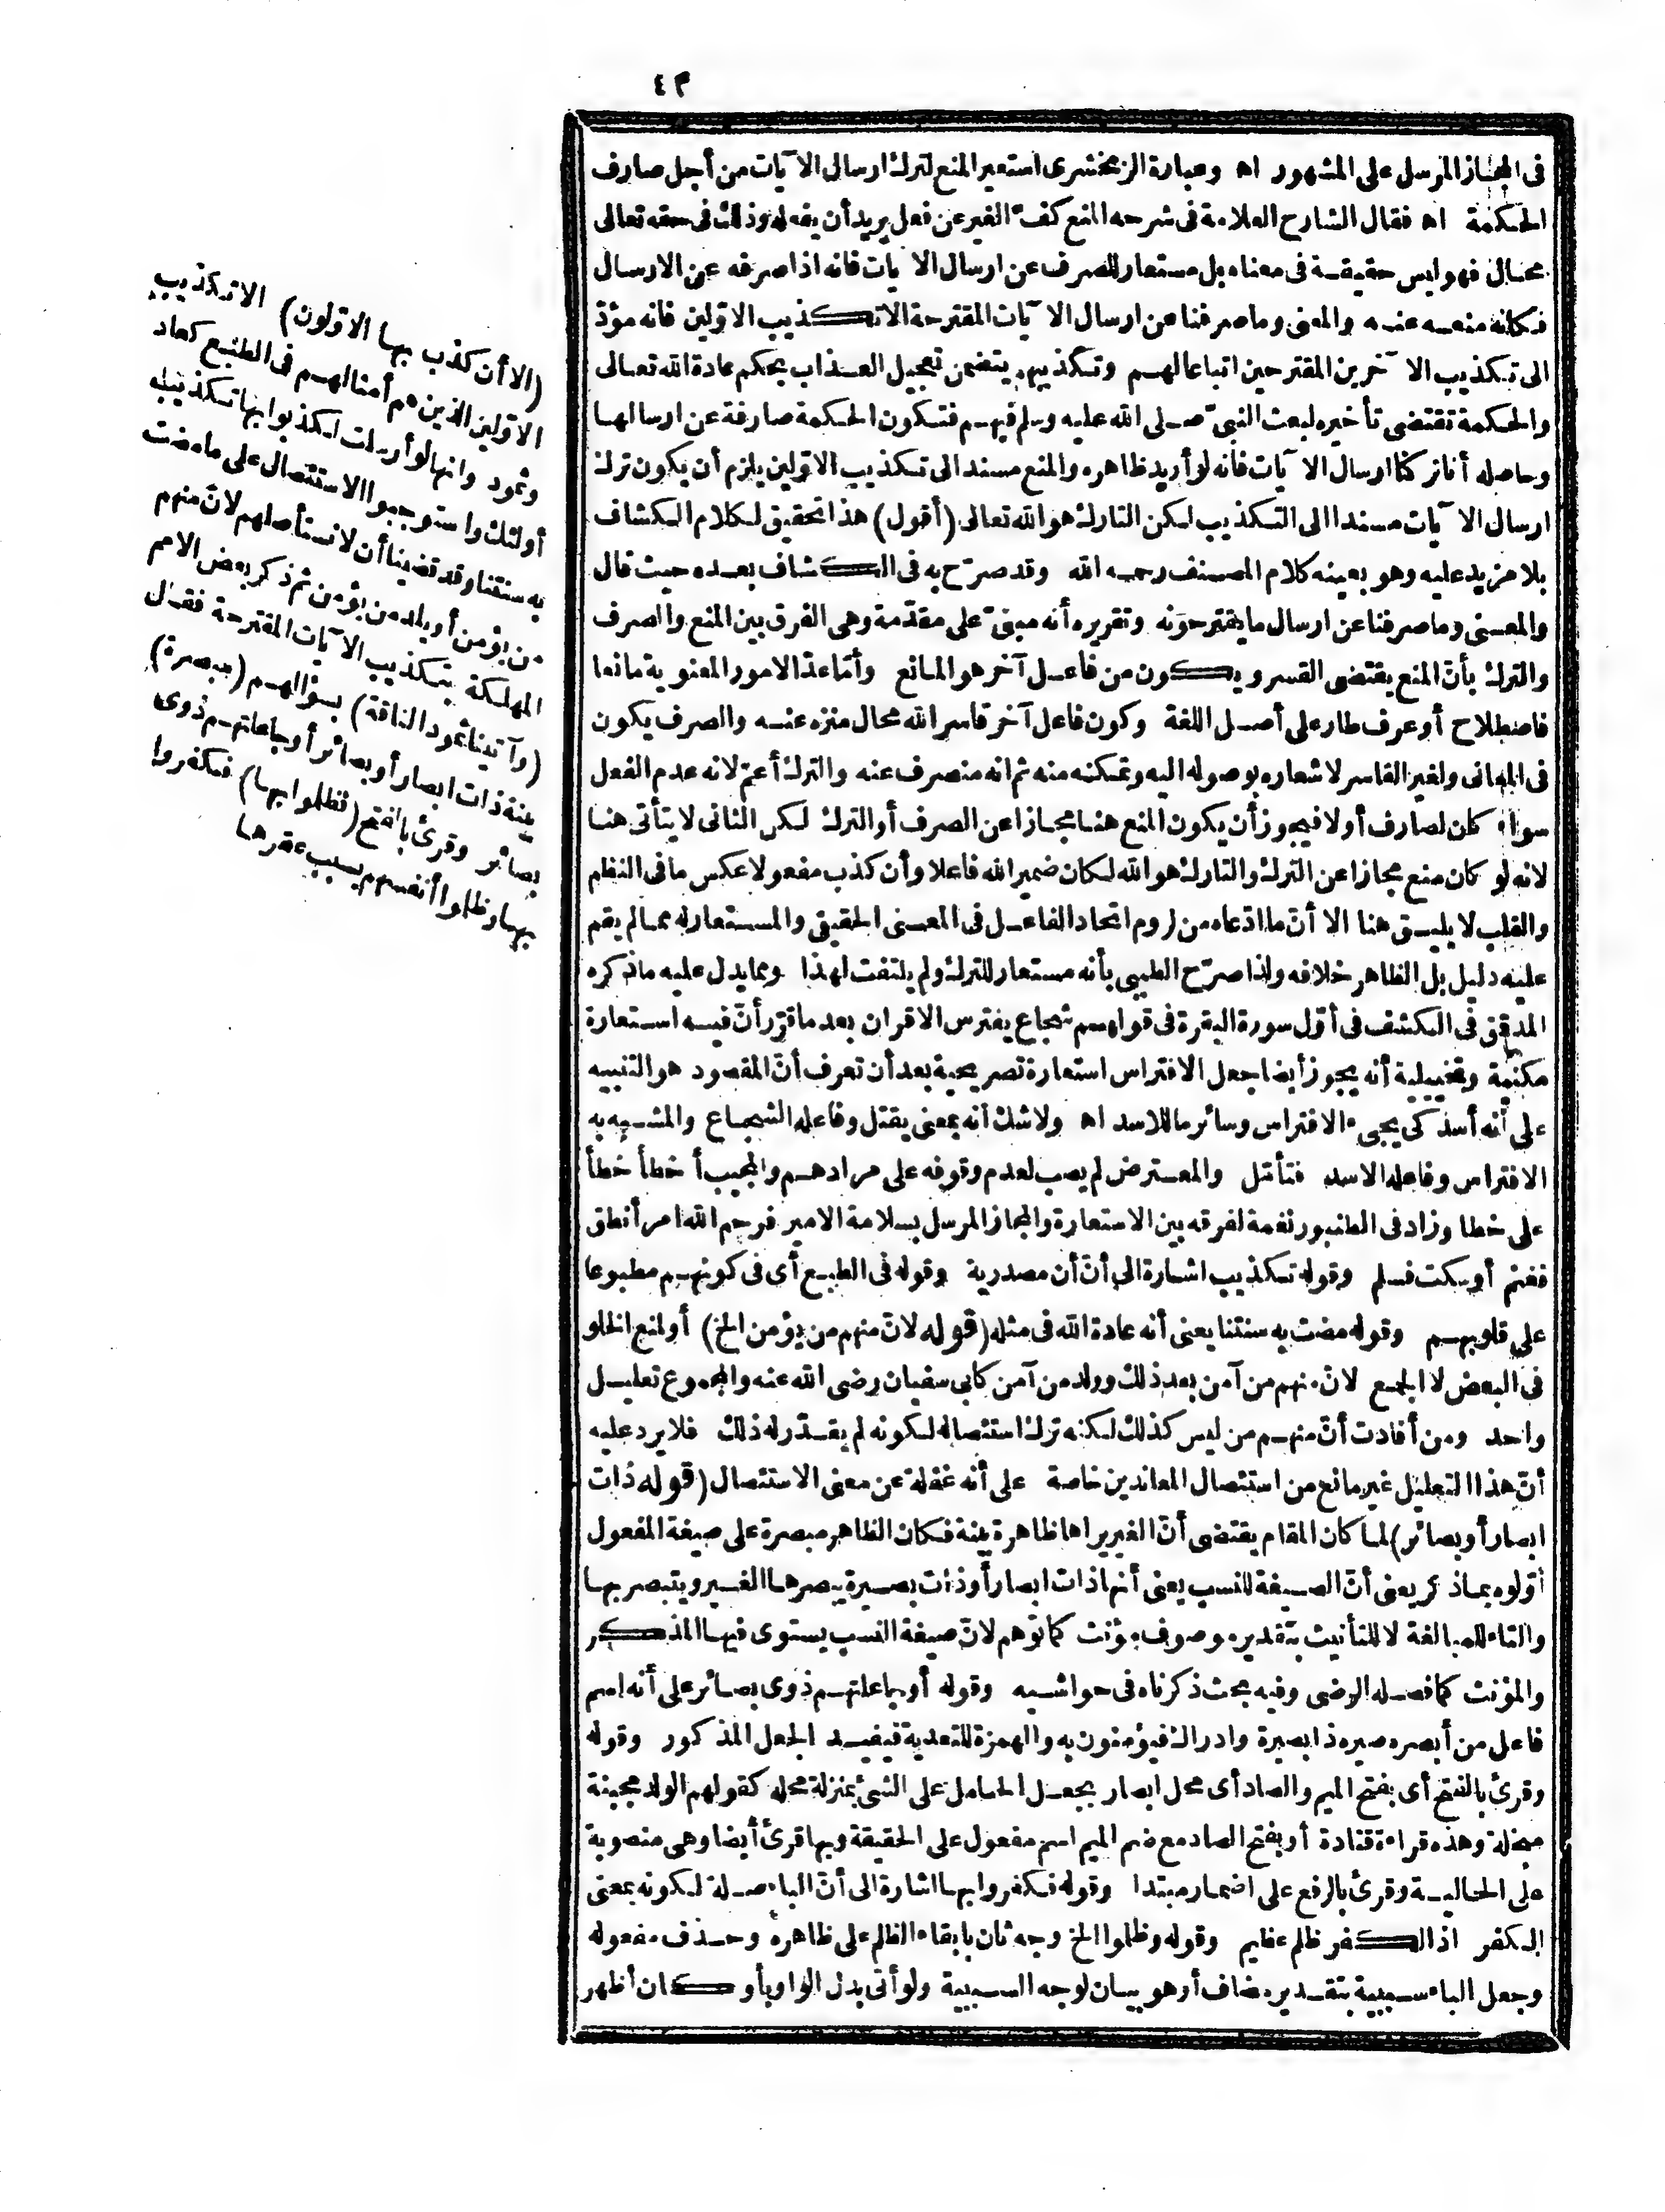 ٤٣
فى المجاز المرسل على المشهور اه وعبارة الزمخشرى استعير المنع لترك ارسال الآيات من أجل صارف
الحكمة اه فقال الشارح العلامة فى شرحه المنع كف الغير عن فعل يريد أن يفعله وذلك فى حقه تعالى
محال فهو ليس حقيقة فى معناه بل مستعار للصرف عن ارسال الآيات فانه اذا صرفه عن الارسال
فكانه منعه عنه والمعنى وما صرفنا عن ارسال الآيات المقترحة الا تكذيب الاوّلين فانه مؤدّ
الى تكذيب الآخرين المقترحين اتباعا لهم وتكذيبهم يتضمن تعجيل العذاب بحكم عادة الله تعالى
والحكمة تقتضى تأخيره لبعث النبىّ صلى الله عليه وسلم فيهم فتكون الحكمة صارفة عن ارسالها
وحاصله أنا تركنا ارسال الآيات فانه لو أريد ظاهره والمنع مسند الى تكذيب الاوّلين يلزم أن يكون ترك
ارسال الآيات مسندا الى التكذيب لكن التارك هو الله تعالى (أقول) هذا تحقيق لكلام الكشاف
بلا مزيد عليه وهو بعينه كلام المصنف رحمه الله وقد صرّح به فى الكشاف بعده حيث قال
والمعنى وما صرفنا عن ارسال ما يقترحونه وتقريره أنه مبنىّ على مقدّمة وهى الفرق بين المنع والصرف
والترك بأنّ المنع يقتضى القسر ويكون من فاعل آخر هو المانع وأمّا عدّ الامور المعنوية مانعا
فاصطلاح أو عرف طار على أصل اللغة وكون فاعل آخر قاسر الله محال منزه عنه والصرف يكون
فى المعانى ولغير القاسر لاشعاره بوصوله اليه وتمكنه منه ثم انه منصرف عنه والترك أعمّ لانه عدم الفعل
سواء كان لصارف أولا فيجوز أن يكون المنع هنا مجازا عن الصرف أو الترك لكن الثانى لا يتأتى هنا
لانه لو كان منع مجازا عن الترك والتارك هو الله لكان ضمير الله فاعلا وأن كذب مفعولا عكس ما فى النظم
والقلب لا يليق هنا الا أنّ ما ادّعاه من لزوم اتحاد الفاعل فى المعنى الحقيقى والمستعار له مما لم يقم
عليه دليل بل الظاهر خلافه ولذا صرّح الطيبى بأنه مستعار للترك ولم يلتفت لهذا ومما يدل عليه ما ذكره
المدقق فى الكشف فى أوّل سورة البقرة فى قولهم شجاع يفترس الاقران بعد ما قرّر أنّ فيه استعارة
مكنية وتخييلية أنه يجوز أيضا جعل الافتراس استعارة تصريحية بعد أن تعرف أنّ المقصود هو التنبيه
على أنه أسد كى يجىء الافتراس وسائر ما للاسد اه ولا شك أنه بمعنى يقتل وفاعله الشجاع والمشبه به
الافتراس وفاعله الاسد فتأمّل والمعترض لم يصب لعدم وقوفه على مرادهم والمجيب أخطأ خطأ
على خطا وزاد فى الطنبور نغمة لفرقه بين الاستعارة والمجاز المرسل بسلامة الامير فرحم الله امرأ نطق
فغنم أو سكت فسلم وقوله تكذيب اشارة الى أنّ أن مصدرية وقوله فى الطبع أى فى كونهم مطبوعا
على قلوبهم وقوله مضت به سنتنا يعنى أنه عادة الله فى مثله (قوله لانّ منهم من يؤمن الخ) أو لمنع الخلو
فى البعض لا الجمع لانّ منهم من آمن بعد ذلك وولد من آمن كأبى سفيان رضى الله عنه والمجموع تعليل
واحد ومن أفادت أنّ منهم من ليس كذلك لكنه ترك استئصاله لكونه لم يقدّر له ذلك فلا يرد عليه
أنّ هذا التعليل غير مانع من استئصال المعاندين خاصة على أنه غفلة عن معنى الاستئصال (قوله ذات
ابصار أو بصائر) لما كان المقام يقتضى أنّ الغير يراها ظاهرة بينة فكان الظاهر مبصرة على صيغة المفعول
أوّلوه بما ذكر يعنى أنّ الصيغة للنسب يعنى أنها ذات ابصار أو ذات بصيرة يبصرها الغير ويتبصر بها
والتاء للمبالغة لا للتأنيث بتقدير موصوف مؤنث كما توهم لانّ صيغة النسب يستوى فيها المذكر
والمؤنث كما فصله الرضى وفيه بحث ذكرناه فى حواشيه وقوله أو جاعلتهم ذوى بصائر على أنه اسم
فاعل من أبصره صيره ذا بصيرة وادراك فيؤمنون به والهمزة للتعدية فيفيد الجعل المذكور وقوله
وقرئ بالفتح أى بفتح الميم والصاد أى محل ابصار بجعل الحامل على الشئ بمنزلة محله كقولهم الولد مجبنة
مبخلة وهذه قراءة قتادة أو بفتح الصاد مع ضم الميم اسم مفعول على الحقيقة وبها قرئ أيضا وهى منصوبة
على الحالية وقرئ بالرفع على اضمار مبتدا وقوله فكفروا بها اشارة الى أنّ الباء صلة لكونه بمعنى
الكفر اذ الكفر ظلم عظيم وقوله وظلموا الخ وجه ثان بابقاء الظلم على ظاهره وحذف مفعوله
وجعل الباء سببية بتقدير مضاف أو هو بيان لوجه السببية ولو أتى بدل الواو بأو كان أظهر
(الا أن كذب بها الاوّلون) الا تكذيب
الاوّلين الذين هم أمثالهم فى الطبع كعاد
وثمود وانها لو أرسلت لكذبوا بها تكذيب
أولئك واستوجبوا الاستئصال على ما مضت
به سنتنا وقد قضينا أن لا نستأصلهم لانّ منهم
من يؤمن أو يلد من يؤمن ثم ذكر بعض الامم
المهلكة بتكذيب الآيات المقترحة فقال
(وآتينا ثمود الناقة) بسؤالهم (مبصرة)
بينة ذات ابصار أو بصائر أو جاعلتهم ذوى
بصائر وقرئ بالفتح (فظلموا بها) فكفروا
بها وظلموا أنفسهم بسبب عقرها